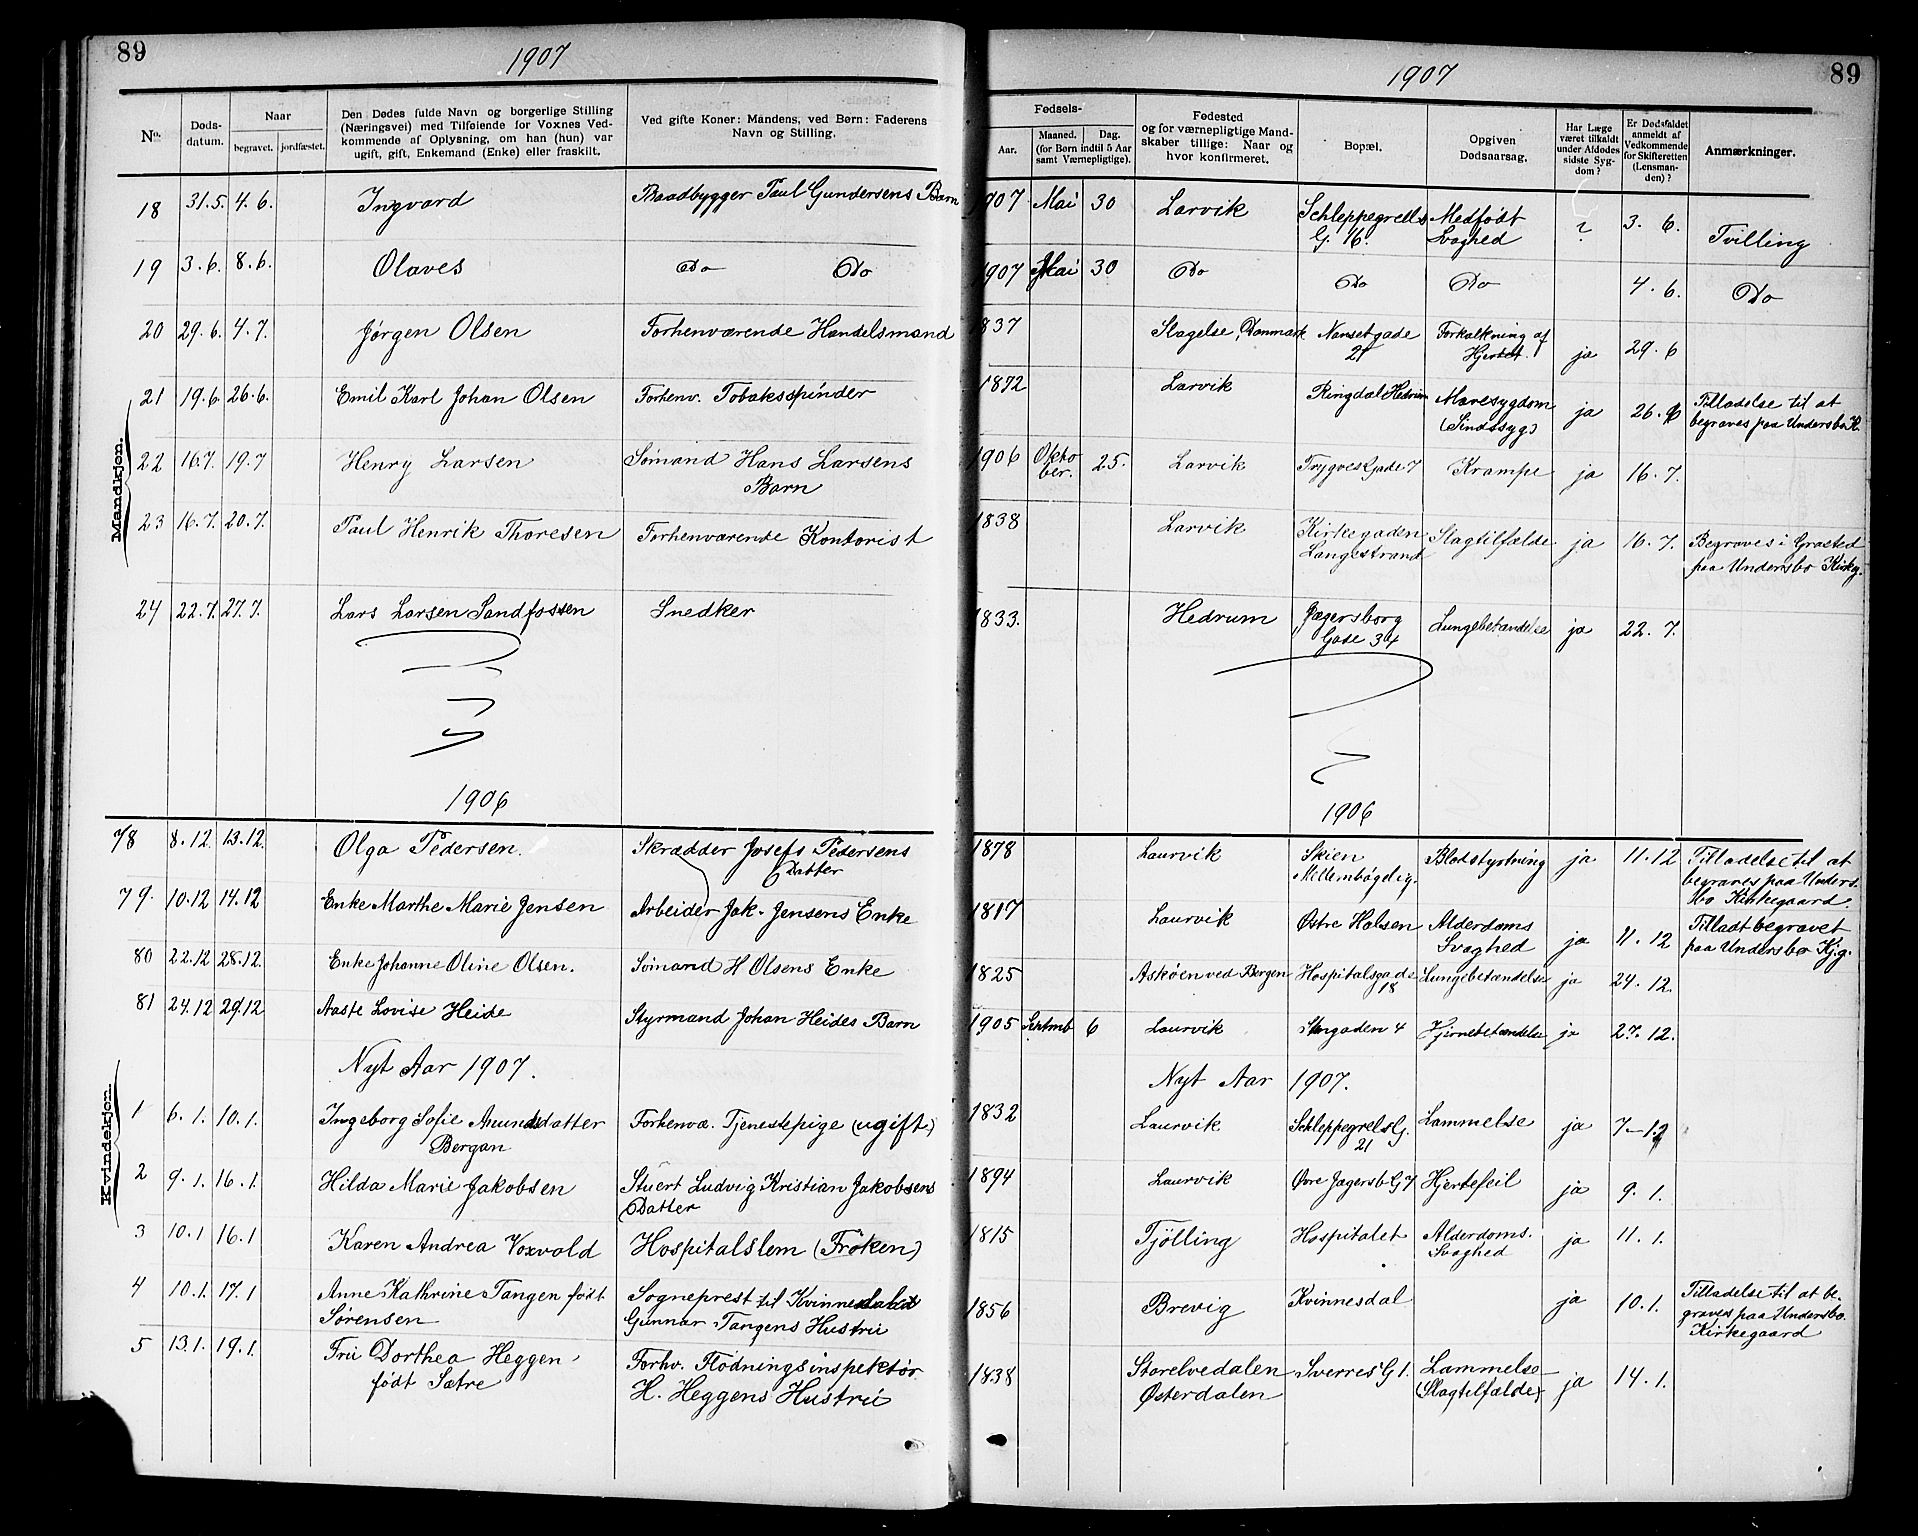 89
1907
1907
89
No.
Døds-
datum.
Naar
begravet.
jordfæstet.
Den Dødes fulde Navn og borgerlige Stilling
(Næringsvei) med Tilføiende for Voxnes Ved-
kommende af Oplysning, om han (hun) var
ugift, gift, Enkemand (Enke) eller fraskilt.
Ved gifte Koner: Mandens, ved Børn: Faderens
Navn og Stilling.
Fødsels-
Aar.
Maaned.
Dag.
(for Børn indtil 5 Aar
samt Værnepligtige).
Fødested
og for værnepligtige Mand-
skaber tillige: Naar og
hvor konfirmeret.
Bopæl.
Opgiven
Dødsaarsag.
Har Læge
været tilkaldt
under Afdødes
sidste Syg-
dom?
Er Dødsfaldet
anmeldt af
Vedkommende
for Skifteretten
(Lensman-
den)?
Anmærkninger.
Mandkjøn.
18 31.5. 4.6. Ingvard Baadbygger Paul Gundersens Barn 1907 Mai 30 Larvik Schleppegrells Medfödt ? 3. 6. Tvilling
G. 16. Svaghed
19 3.6. 8.6. Olaves Do Do 1907 Mai 30 Do Do Do 4. 6. Do
20 29.6. 4.7. Jørgen Olsen Forhenværende Handelsmand 1837 Slagelse, Danmark Nansetgade Forkalkning af ja 29. 6
21 Hjertet.
21 19.6. 26.6. Emil Karl Johan Olsen Forhenv. Tobaksspinder 1872 Larvik Ringdal Hedrum Mavesygdom ja 26. 6 Tilladelse til at
(Sindssyg) begraves paa Undersbo K.
22 16.7. 19.7 Henry Larsen Sömand Hans Larsens 1906 Okto 25. Larvik Trygves Gade 7 Krampe ja 16. 7.
Barn ber.
23 16.7. 20.7. Paul Henrik Thoresen Forhenværende Kontorist 1838 Larvik Kirkegaden Slagtilfælde ja 16. 7. Begraves i Gravsted
Langestrand paa Undersbo Kirkg.
24 22.7. 27.7. Lars Larsen Sandfossen Snedker 1833. Hedrum Jægersborg Lungebetændelse ja 22. 7.
Gade 34
1906
1906
Kvindekjøn.
78 8.12. 13.12. Olga Pedersen. Skrædder Josefs Pedersens 1878 Laurvik Skien Blodstyrtning ja 11.12 Tilladelse til at
Datter Mellembögdig. begraves paa Unders-
bo Kirkegaard.
79. 10.12 14.12 Enke Marthe Marie Jensen Arbeider Jak. Jensens Enke 1817 Laurvik Østre Halsen Alderdoms ja 11. 12 Tilladt begravet
Svaghed paa Undersbo Kg.
80 22.12 28.12. Enke Johanne Oline Olsen. Sömand H Olsens Enke 1825 Askøen ved Bergen Hospitalsgade Lungebetændelse ja 24. 12.
18
81 24.12 29.12 Aaste Lovise Heide Styrmand Johan Heides Barn 1905 Septmb 6 Laurvik Stengaden 4 Hjernebetændelse ja 27. 12.
Nyt Aar 1907. Nyt Aar 1907.
1 6. 1. 10.1. Ingeborg Sofie Amundsdatter Forhenvæ. Tjenestepige (ugift) 1832 Laurvik Schleppegrels G. Lammelse ja 7-1
Bergan 21
2 9. 1. 16. 1. Hilda Marie Jakobsen Stuert Ludvig Kristian Jakobsens 1894 Laurvik Øvre Jagersb G 7 Hjertefeil ja 9. 1.
Datter
3 10.1 16.1 Karen Andrea Voxvold Hospitalslem (Fröken) 1815 Tjölling Hospitalet Alderdoms. ja 11. 1.
Svaghed
4 10.1. 17.1 Anne Kathrine Tangen født Sogneprest til Kvinnesdals 1856 Brevig Kvinnesdal ja 10.1. Tilladelse til at be-
Sörensen Gunnar Tangens Hustru graves paa Undersbo.
Kirkegaard
5 13.1. 19.1. Frü Dorthea Heggen Forhv. Flödningsinspektør 1838 Storelvedalen Sverres G 1. Lammelse ja 14. 1.
född Sætre H. Heggens Hustrü Østerdalen (Slagtilfælde)